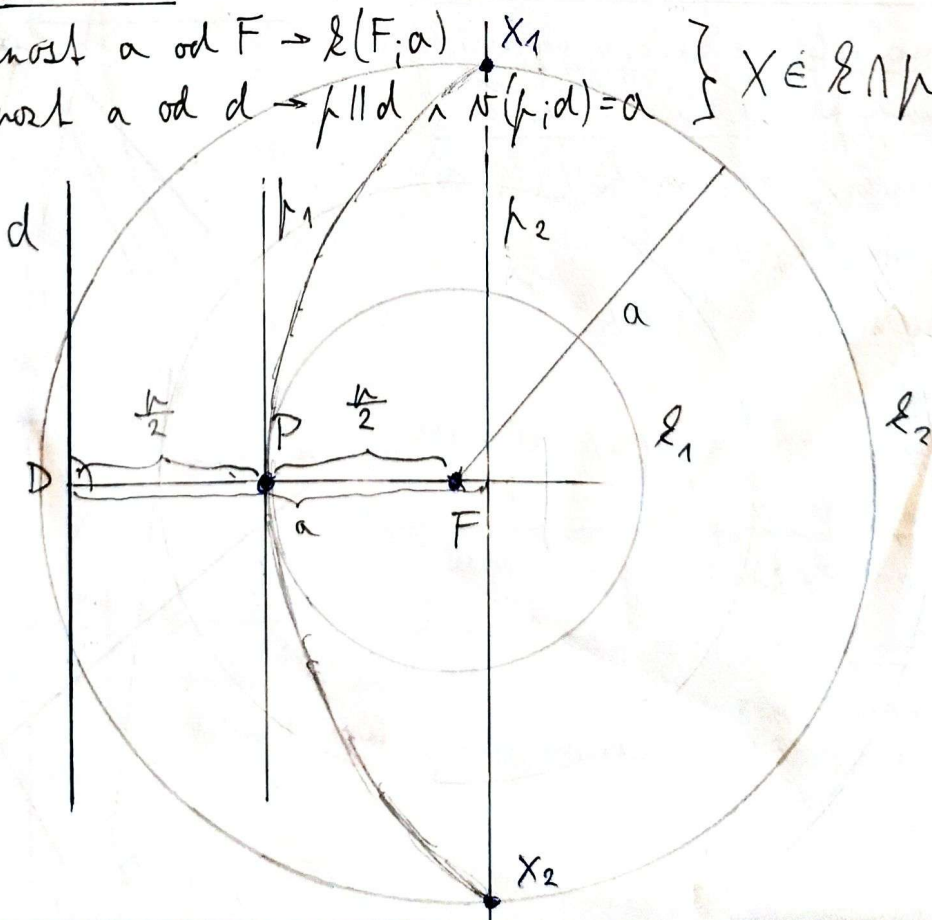 nost a od F → k(F;a)
nost a od d → p∥d ∧ v(p;d)=a } X ∈ k∩p
X1
d
p1
p2
a
r/2
r/2
P
k1
k2
D
a
F
X2